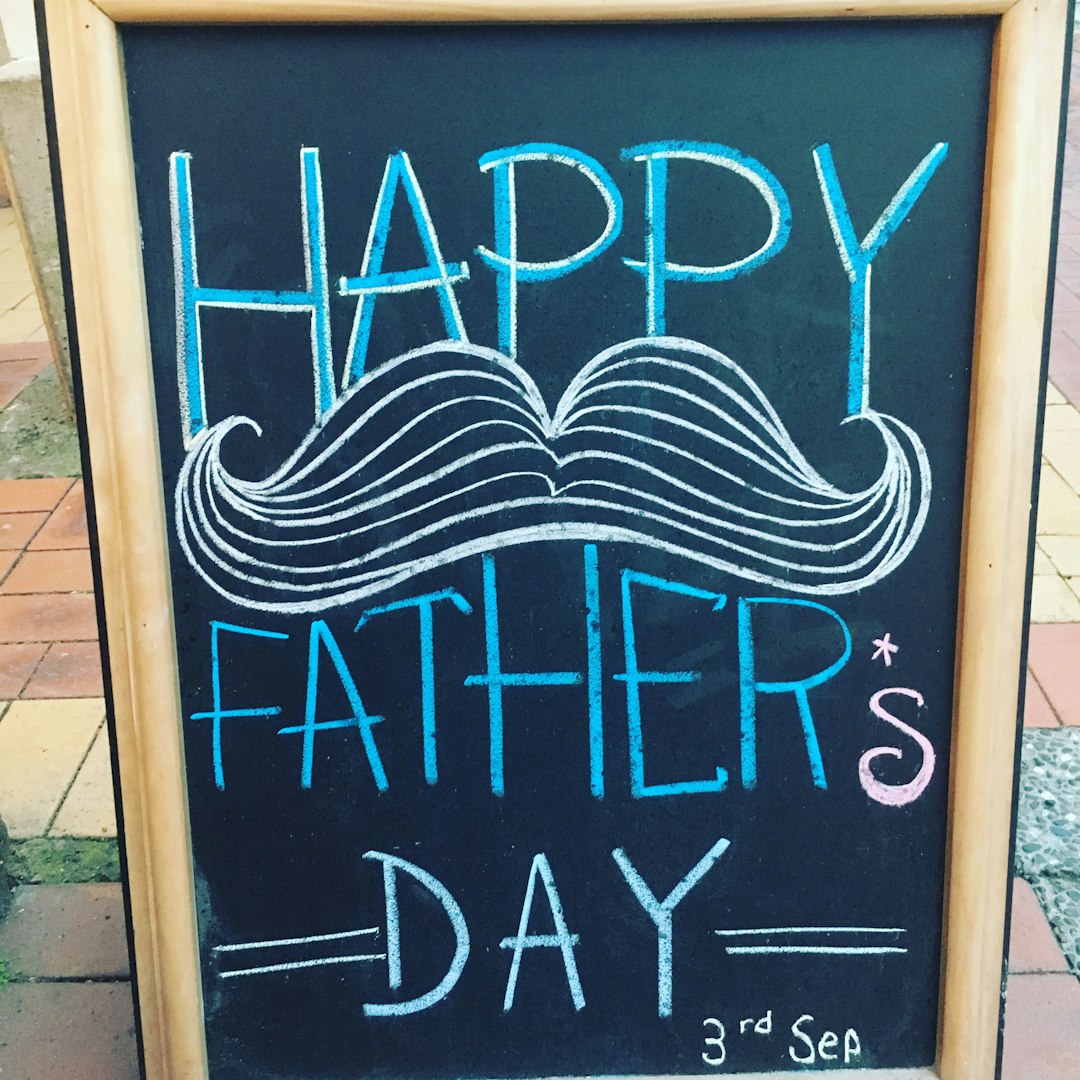 HAPPY
FATHER*S
DAY
3rd Sep